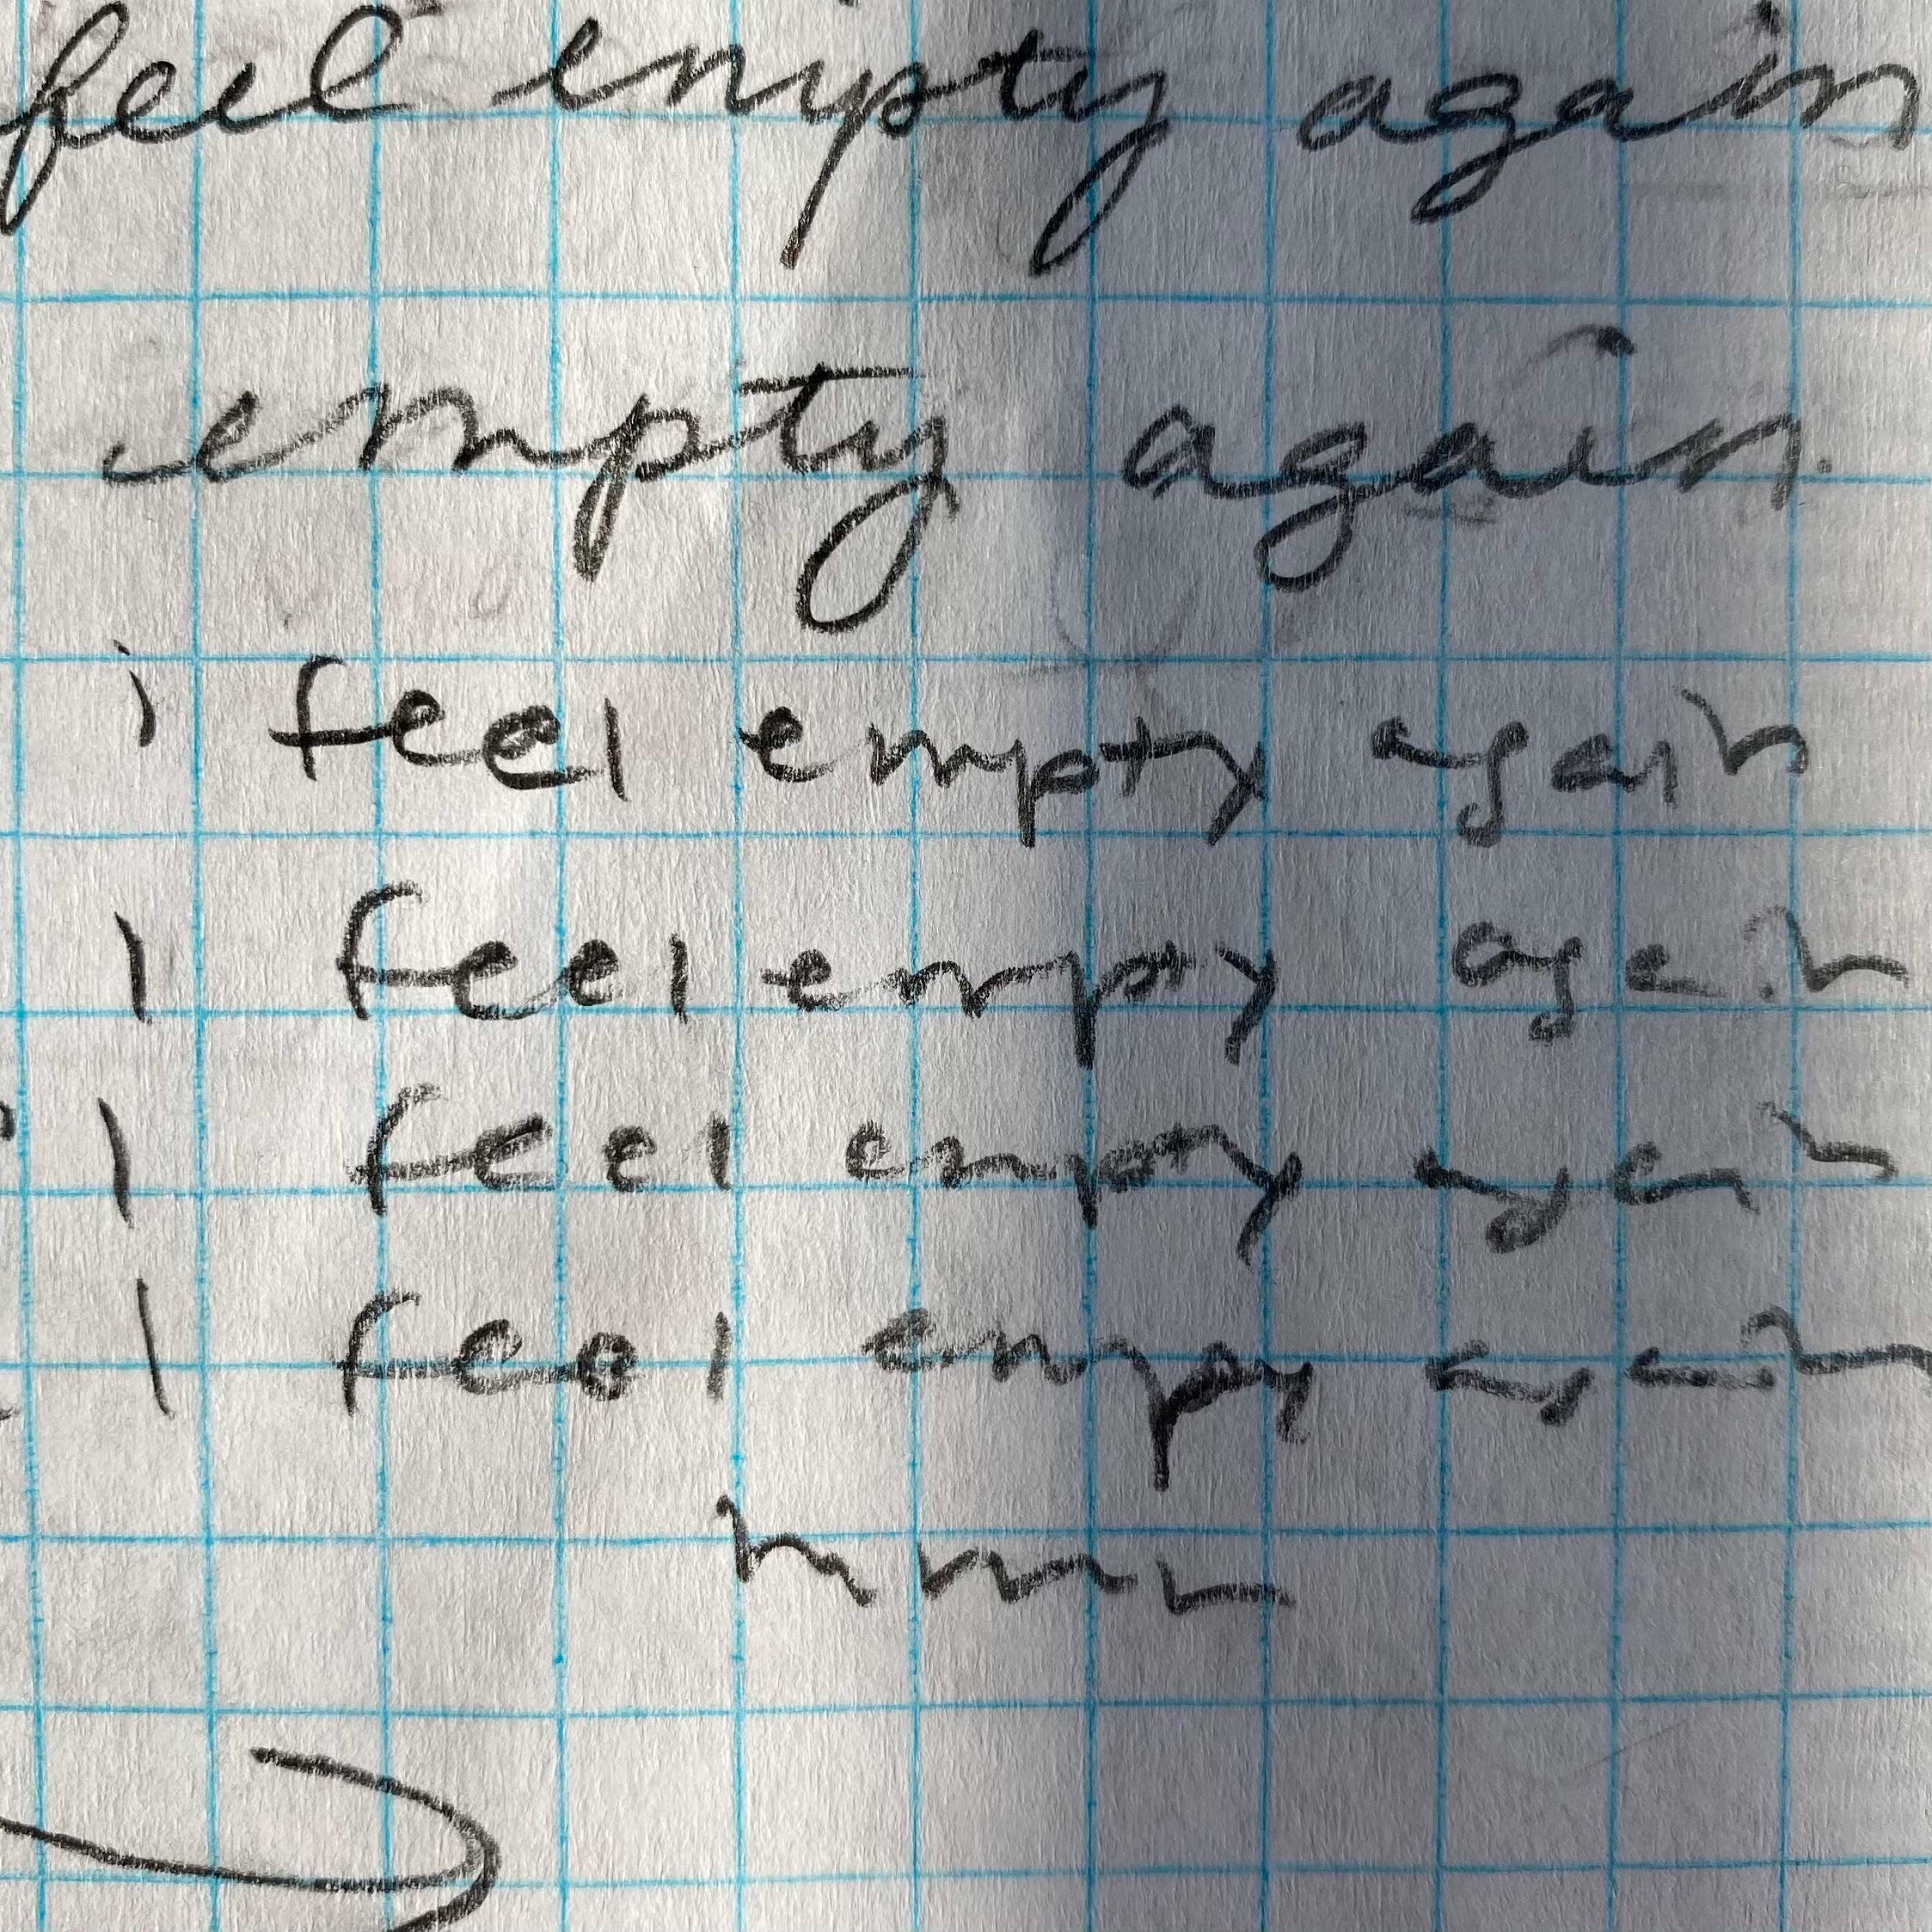 feel empty again
empty again.
i feel empty again
I feel empty again
I feel empty again
I feel empy again
hmm